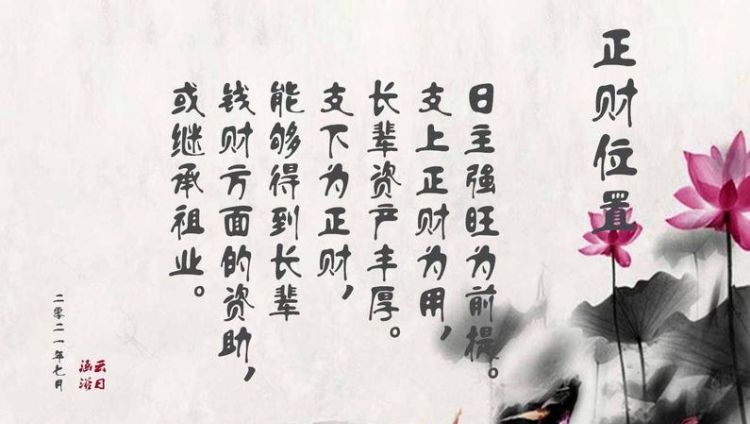 正财位置
日主强旺为前提。
支上正财为用，
长辈资产丰厚。
支下为正财，
能够得到长辈
钱财方面的资助，
或继承祖业。
二零二一年七月